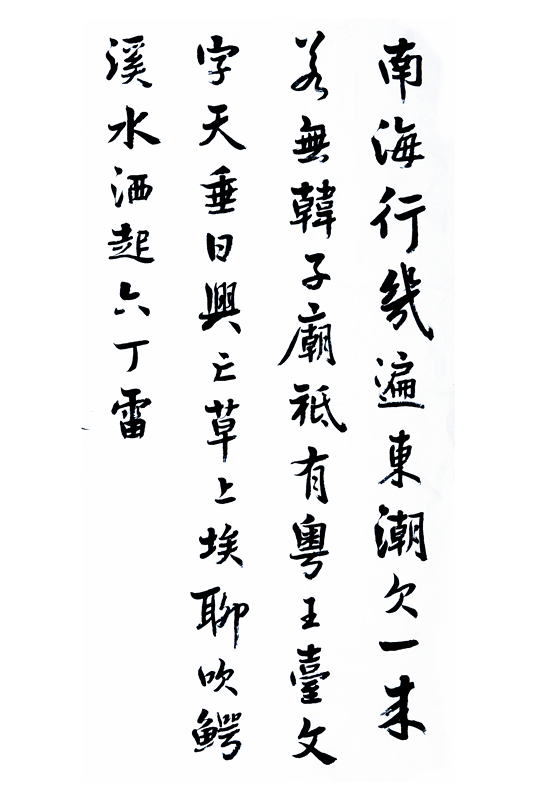 南海行幾遍東潮欠一來
若無韓子廟祗有粵王臺文
字天垂日興亡草上埃聊吹鰐
溪水洒起六丁雷